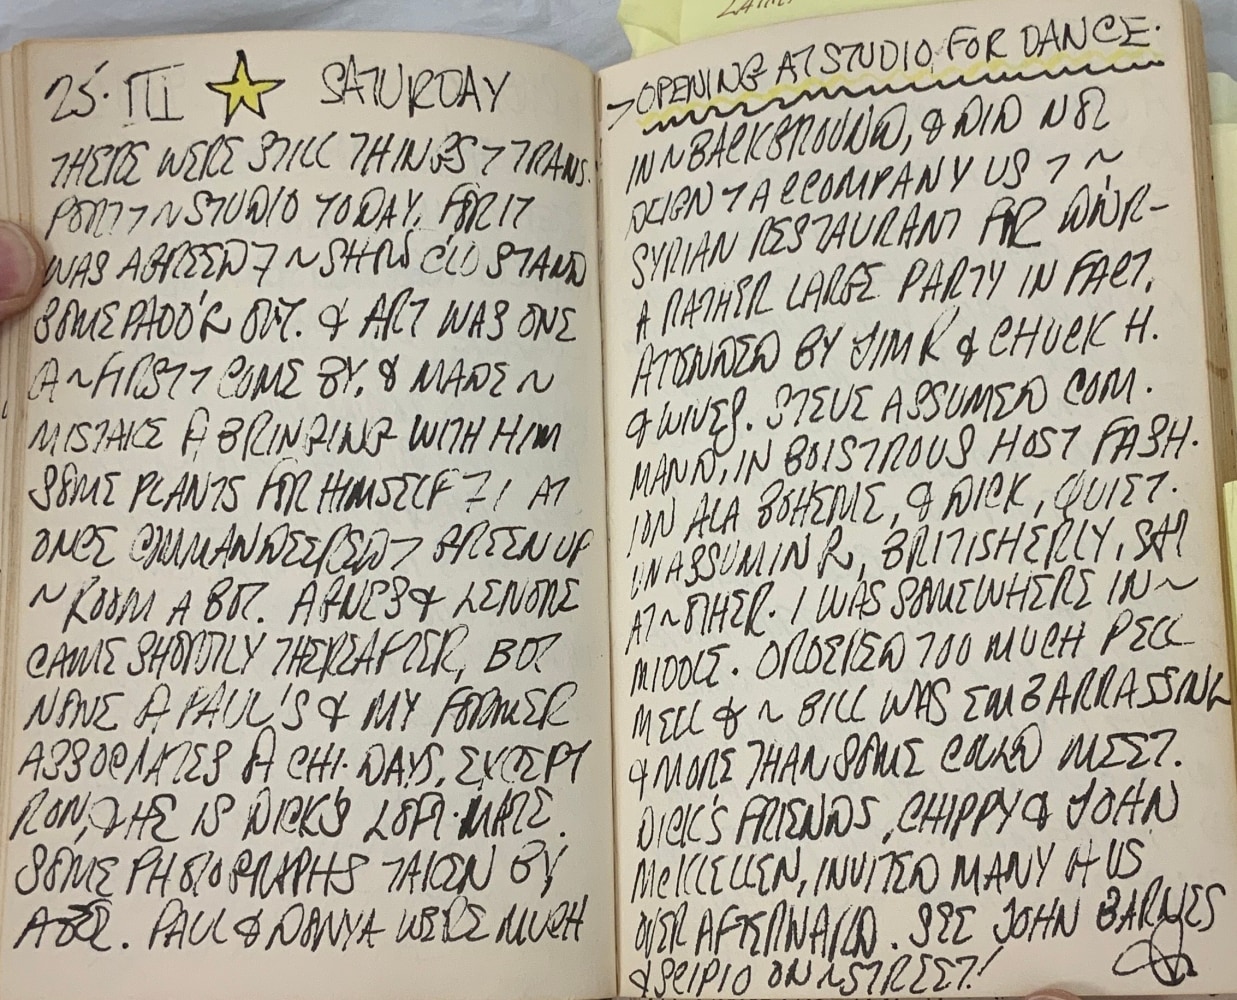 25·III ★ SATURDAY
THERE WERE STILL THINGS 7 TRANS-
PORT 7 ~ STUDIO TODAY, FOR IT
WAS AGREED 7 ~ SHOW C'LD STAND
SOME PADD'G OUT. & ART WAS ONE
A ~ FIRST 7 COME BY, & MADE ~
MISTAKE A BRINGING WITH HIM
SOME PLANTS FOR HIMSELF 7 I AT
ONCE COMMANDEERED 7 GREEN UP
~ ROOM A BIT. AGNES & LENORE
CAME SHORTLY THEREAFTER, BUT
NONE A PAUL'S & MY FORMER
ASSOCIATES A CHI. DAYS, EXCEPT
RON, & HE IS DICK'S LOFT-MATE.
SOME PHOTOGRAPHS TAKEN BY
. PAUL & DANYA WERE MUCH
→OPENING AT STUDIO FOR DANCE.
IN ~ BACKGROUND, & DID NOT
DEIGN 7 ACCOMPANY US 7 ~
SYRIAN RESTAURANT FOR DIN'R-
A RATHER LARGE PARTY IN FACT,
ATTENDED BY JIM R & CHUCK H.
& WIVES. STEVE ASSUMED COM-
MAND, IN BOISTROUS HOST FASH-
ION ALA BOHEME, & DICK, QUIET-
UNASSUMING, BRITISHERLY, SAT
AT ~ OTHER. I WAS SOMEWHERE IN ~
MIDDLE. ORDERED TOO MUCH PELL
MELL & ~ BILL WAS EMBARRASSING
& MORE THAN SOME COULD MEET.
DICK'S FRIENDS, CHIPPY & JOHN
McKLELLEN, INVITED MANY A US
OVER AFTERWARD. SEE JOHN BARNES
& SCIPIO ON ~ STREET!